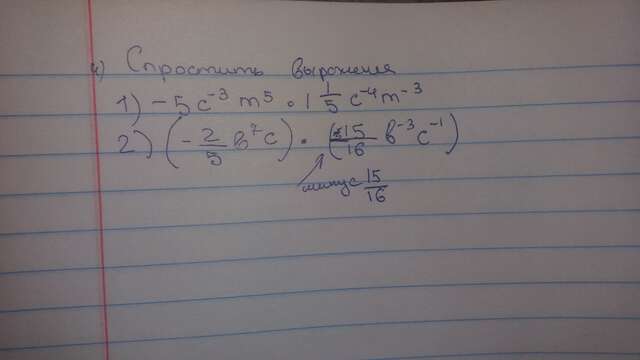 4) Спростить выражения
1) -5c⁻³m⁵ · 1 1/5 c⁻⁴m⁻³
2) (-2/5 b⁷c) · (-15/16 b⁻³c⁻¹)
минус 15/16